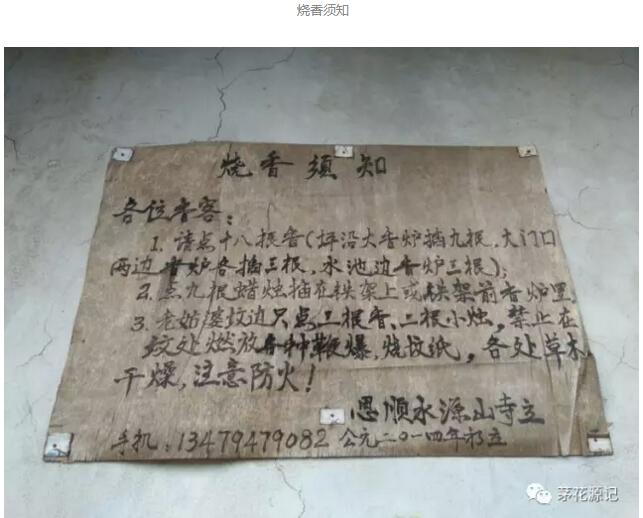 烧香须知
烧香须知
各位香客：
1. 请点十八根香(坪沿大香炉插九根，大门口
两边香炉各插三根，水池边香炉三根)；
2. 点九根蜡烛插在铁架上或铁架前香炉里
3. 老姑婆坟边只点三根香、二根小烛，禁止在
坟处燃放各种鞭爆，烧纹纸，各处草木
干燥，注意防火！
恩顺水源山寺立
手机：13479479082 公元二〇一四年初立
茅花源记